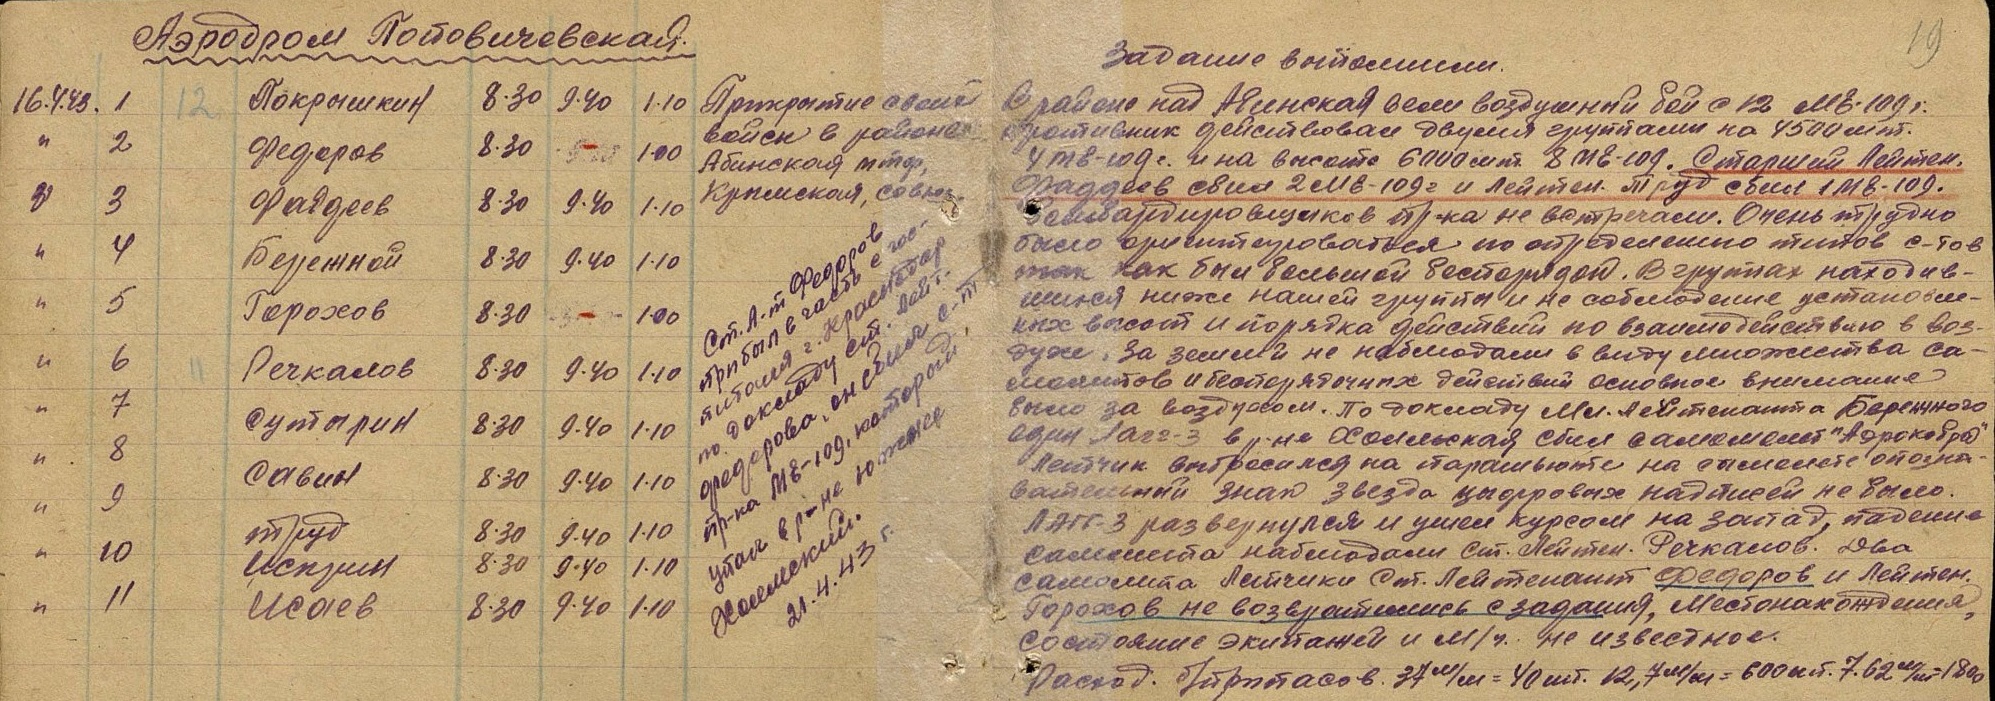 Аэродром Поповичевская.
19
16.4.43. 1 12 Покрышкин 8.30 9.40 1.10
" 2 Федоров 8.30 1.00
" 3 Фадеев 8.30 9.40 1.10
" 4 Бережной 8.30 9.40 1.10
" 5 Горохов 8.30 1.00
" 6 11 Речкалов 8.30 9.40 1.10
" 7 Сутырин 8.30 9.40 1.10
" 8 Савин 8.30 9.40 1.10
" 9 Труд 8.30 9.40 1.10
" 10 Искрин 8.30 9.40 1.10
" 11 Исаев 8.30 9.40 1.10
Прикрытие своих
войск в районе
Абинская
Крымская,
Ст. Л-т Федоров
прибыл в часть с гос-
питаля г. Краснодар
по докладу ст. Лейт.
Федорова, он сбил с-т
пр-ка МЕ-109, который
упал в р-не южнее
Холмский.
21.4.43 г.
Задание выполнили.
В районе над Абинская вели воздушный бой с 12 МЕ-109г.
Противник действовал двумя группами на 4500 мт.
4 МЕ-109г. и на высоте 6000 мт 8 МЕ-109. Старший Лейтен.
Фаддеев сбил 2 МЕ-109г и Лейтен. Труд сбил 1 МЕ-109.
Бомбардировщиков пр-ка не встречали. Очень трудно
было ориентироваться по определению типов с-тов
так как был большой беспорядок. В группах находив-
шихся ниже нашей группы и не соблюдение установле-
ных высот и порядка действий по взаимодействию в воз-
духе. За землей не наблюдали в виду множества са-
молетов и беспорядочных действий основное внимание
было за воздухом. По докладу Мл. Лейтенанта Бережного
один Лагг-3 в р-не Холмская сбил самолет "Аэрокобра"
Летчик выбросился на парашюте на самолете опозна-
вательный знак звезда цыфровых надписей не было.
ЛАГГ-3 развернулся и ушел курсом на запад, падение
самолета наблюдали Ст. Лейтен. Речкалов. Два
самолета Летчики Ст. Лейтенант Федоров и Лейтен.
Горохов не возвратились с задания, Местонахождения,
состояние экипажей и М/ч. не известное.
Расход. Бприпасов. 37 м/м = 40 шт. 12,7 м/м = 600 шт. 7.62 м/м = 1800